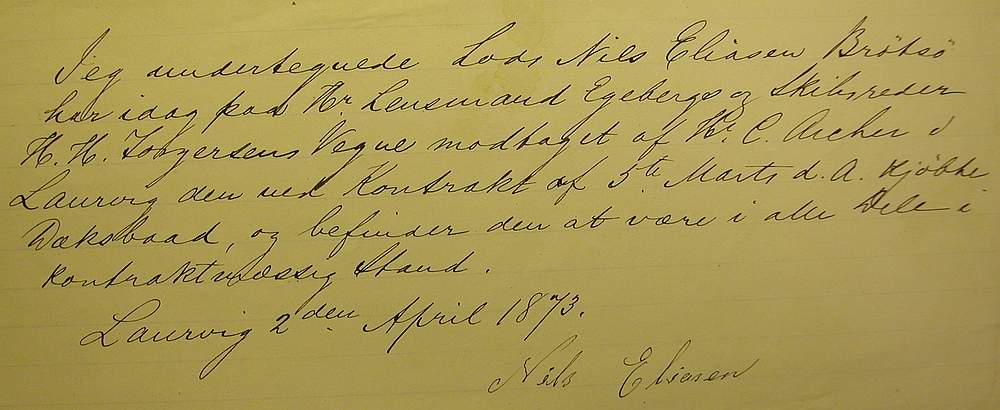 Jeg undertegnede Lods Nils Eliasen Brötsö
har idag paa Hr. Lensmand Egebergs og Skibsreder
H. H. Vegne modtaget af Hr. C. Archer i
Laurvig den ved Kontrakt af 5te Marts d. A. kjöbte
Dæksbaad, og befinder den at være i alle Dele i
kontraktmæssig Stand.
Laurvig 2den April 1873.
Nils Eliasen